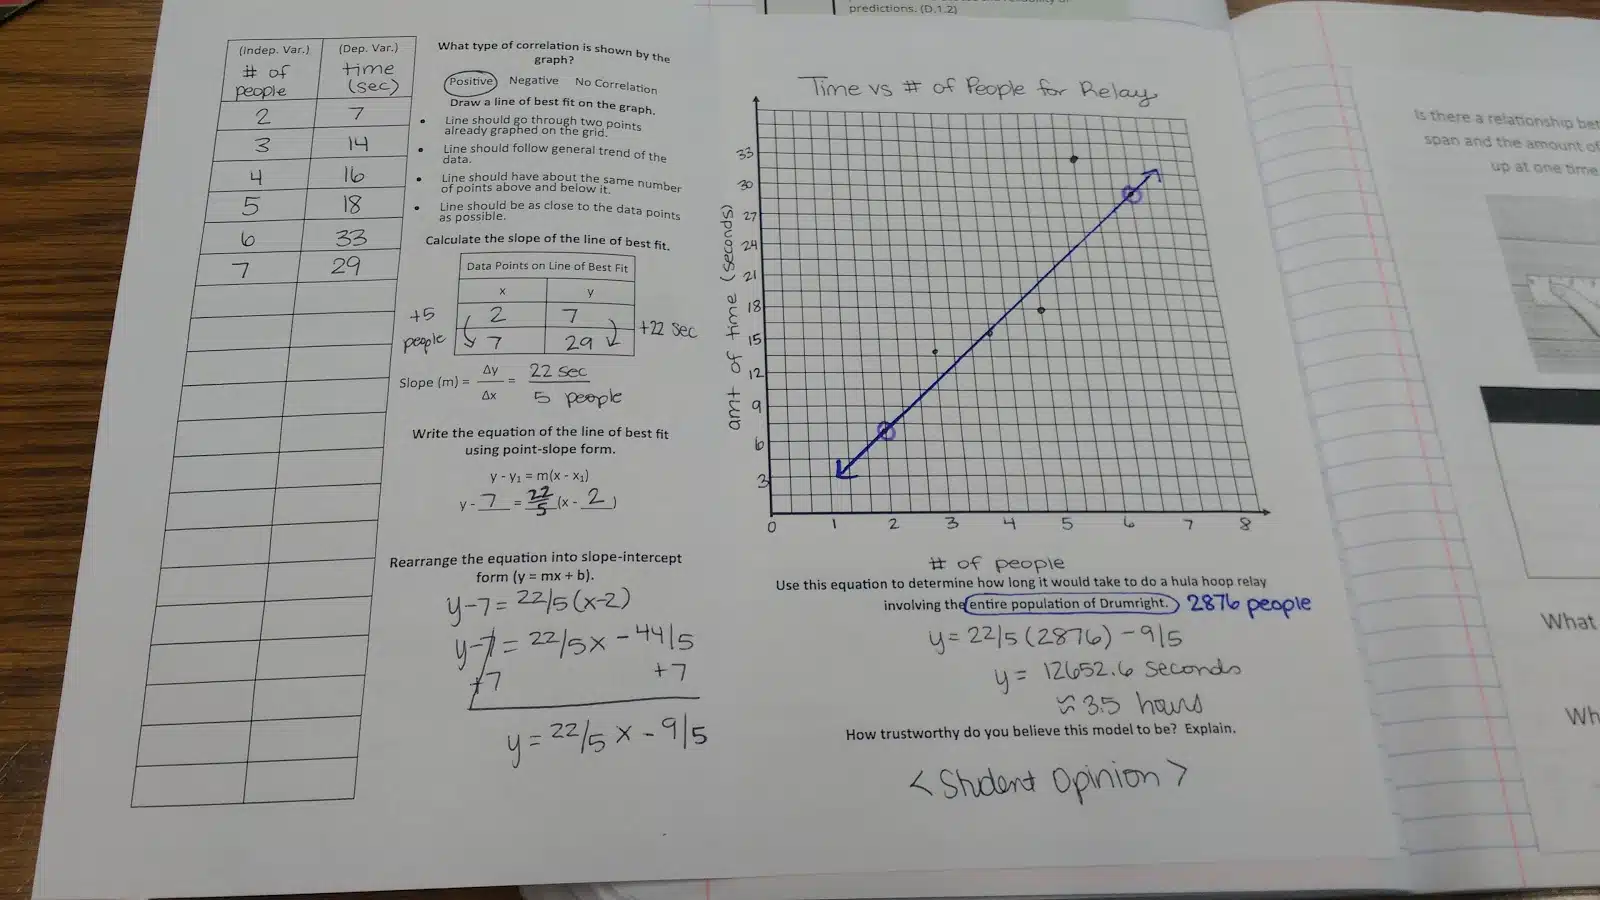 predictions. (D.1.2)
(Indep. Var.) (Dep. Var.)
# of people time (sec)
2 7
3 14
4 16
5 18
6 33
7 29
What type of correlation is shown by the
graph?
Positive Negative No Correlation
Draw a line of best fit on the graph.
• Line should go through two points
already graphed on the grid.
• Line should follow general trend of the
data.
• Line should have about the same number
of points above and below it.
• Line should be as close to the data points
as possible.
Calculate the slope of the line of best fit.
Data Points on Line of Best Fit
x y
+5 people
2 7
7 29
+22 sec
Slope (m) = Δy/Δx = 22 sec/5 people
Write the equation of the line of best fit
using point-slope form.
y - y₁ = m(x - x₁)
y - 7 = 22/5 (x - 2)
Rearrange the equation into slope-intercept
form (y = mx + b).
y-7 = 22/5(x-2)
y-7 = 22/5x - 44/5
+7 +7
y = 22/5 x - 9/5
Time vs # of People for Relay
amt of time (seconds)
33
30
27
24
21
18
15
12
9
6
3
0 1 2 3 4 5 6 7 8
# of people
Use this equation to determine how long it would take to do a hula hoop relay
involving the entire population of Drumright. 2876 people
y = 22/5 (2876) - 9/5
y = 12652.6 seconds
≈ 3.5 hours
How trustworthy do you believe this model to be? Explain.
<Student Opinion>
Is there a relationship
span and the amount of
up at one time
What
Wh